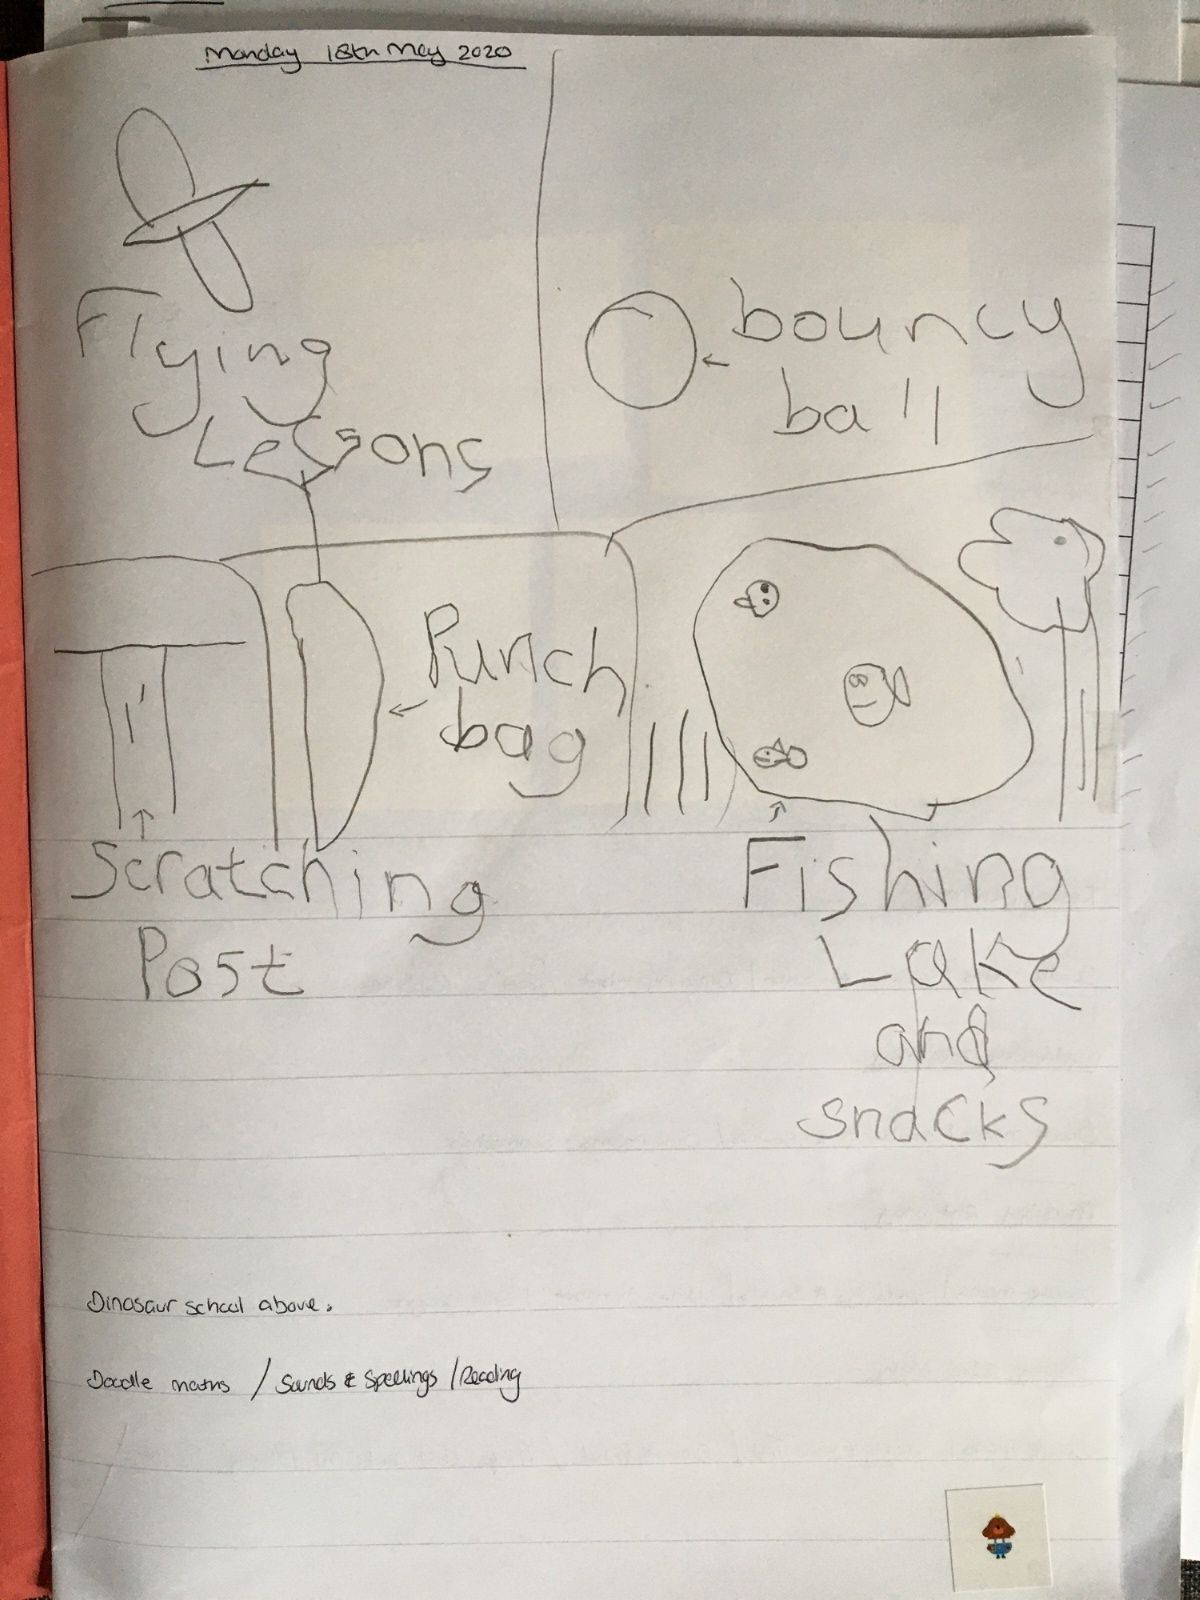 Monday 18th May 2020
Flying
Lessons
bouncy
ball
Punch
bag
Scratching
Post
Fishing
Lake
and
snacks
Dinosaur school above.
Doodle maths / Sounds & Spellings / Reading